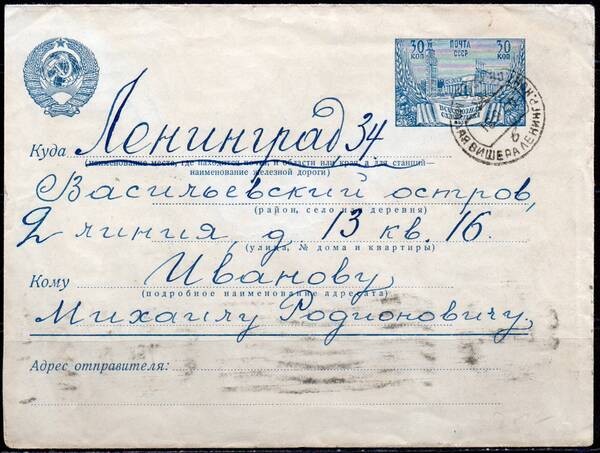 30 ПОЧТА 30
КОП СССР КОП
Куда Ленинград, 34.
(наименование места, где находится почта и области или края, а для станций—
наименование железной дороги)
Васильевский остров,
(район, село или деревня)
2 линия, д 13 кв. 16.
(улица, № дома и квартиры)
Кому Иванову
(подробное наименование адресата)
Михаилу Родионовичу.
Адрес отправителя:
ВИШЕРА ЛЕНИНГР.